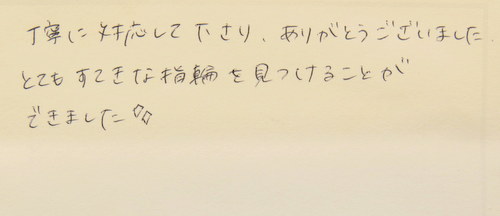 丁寧に対応して下さり、ありがとうございました。
とてもすてきな指輪を見つけることが
できました◇◇